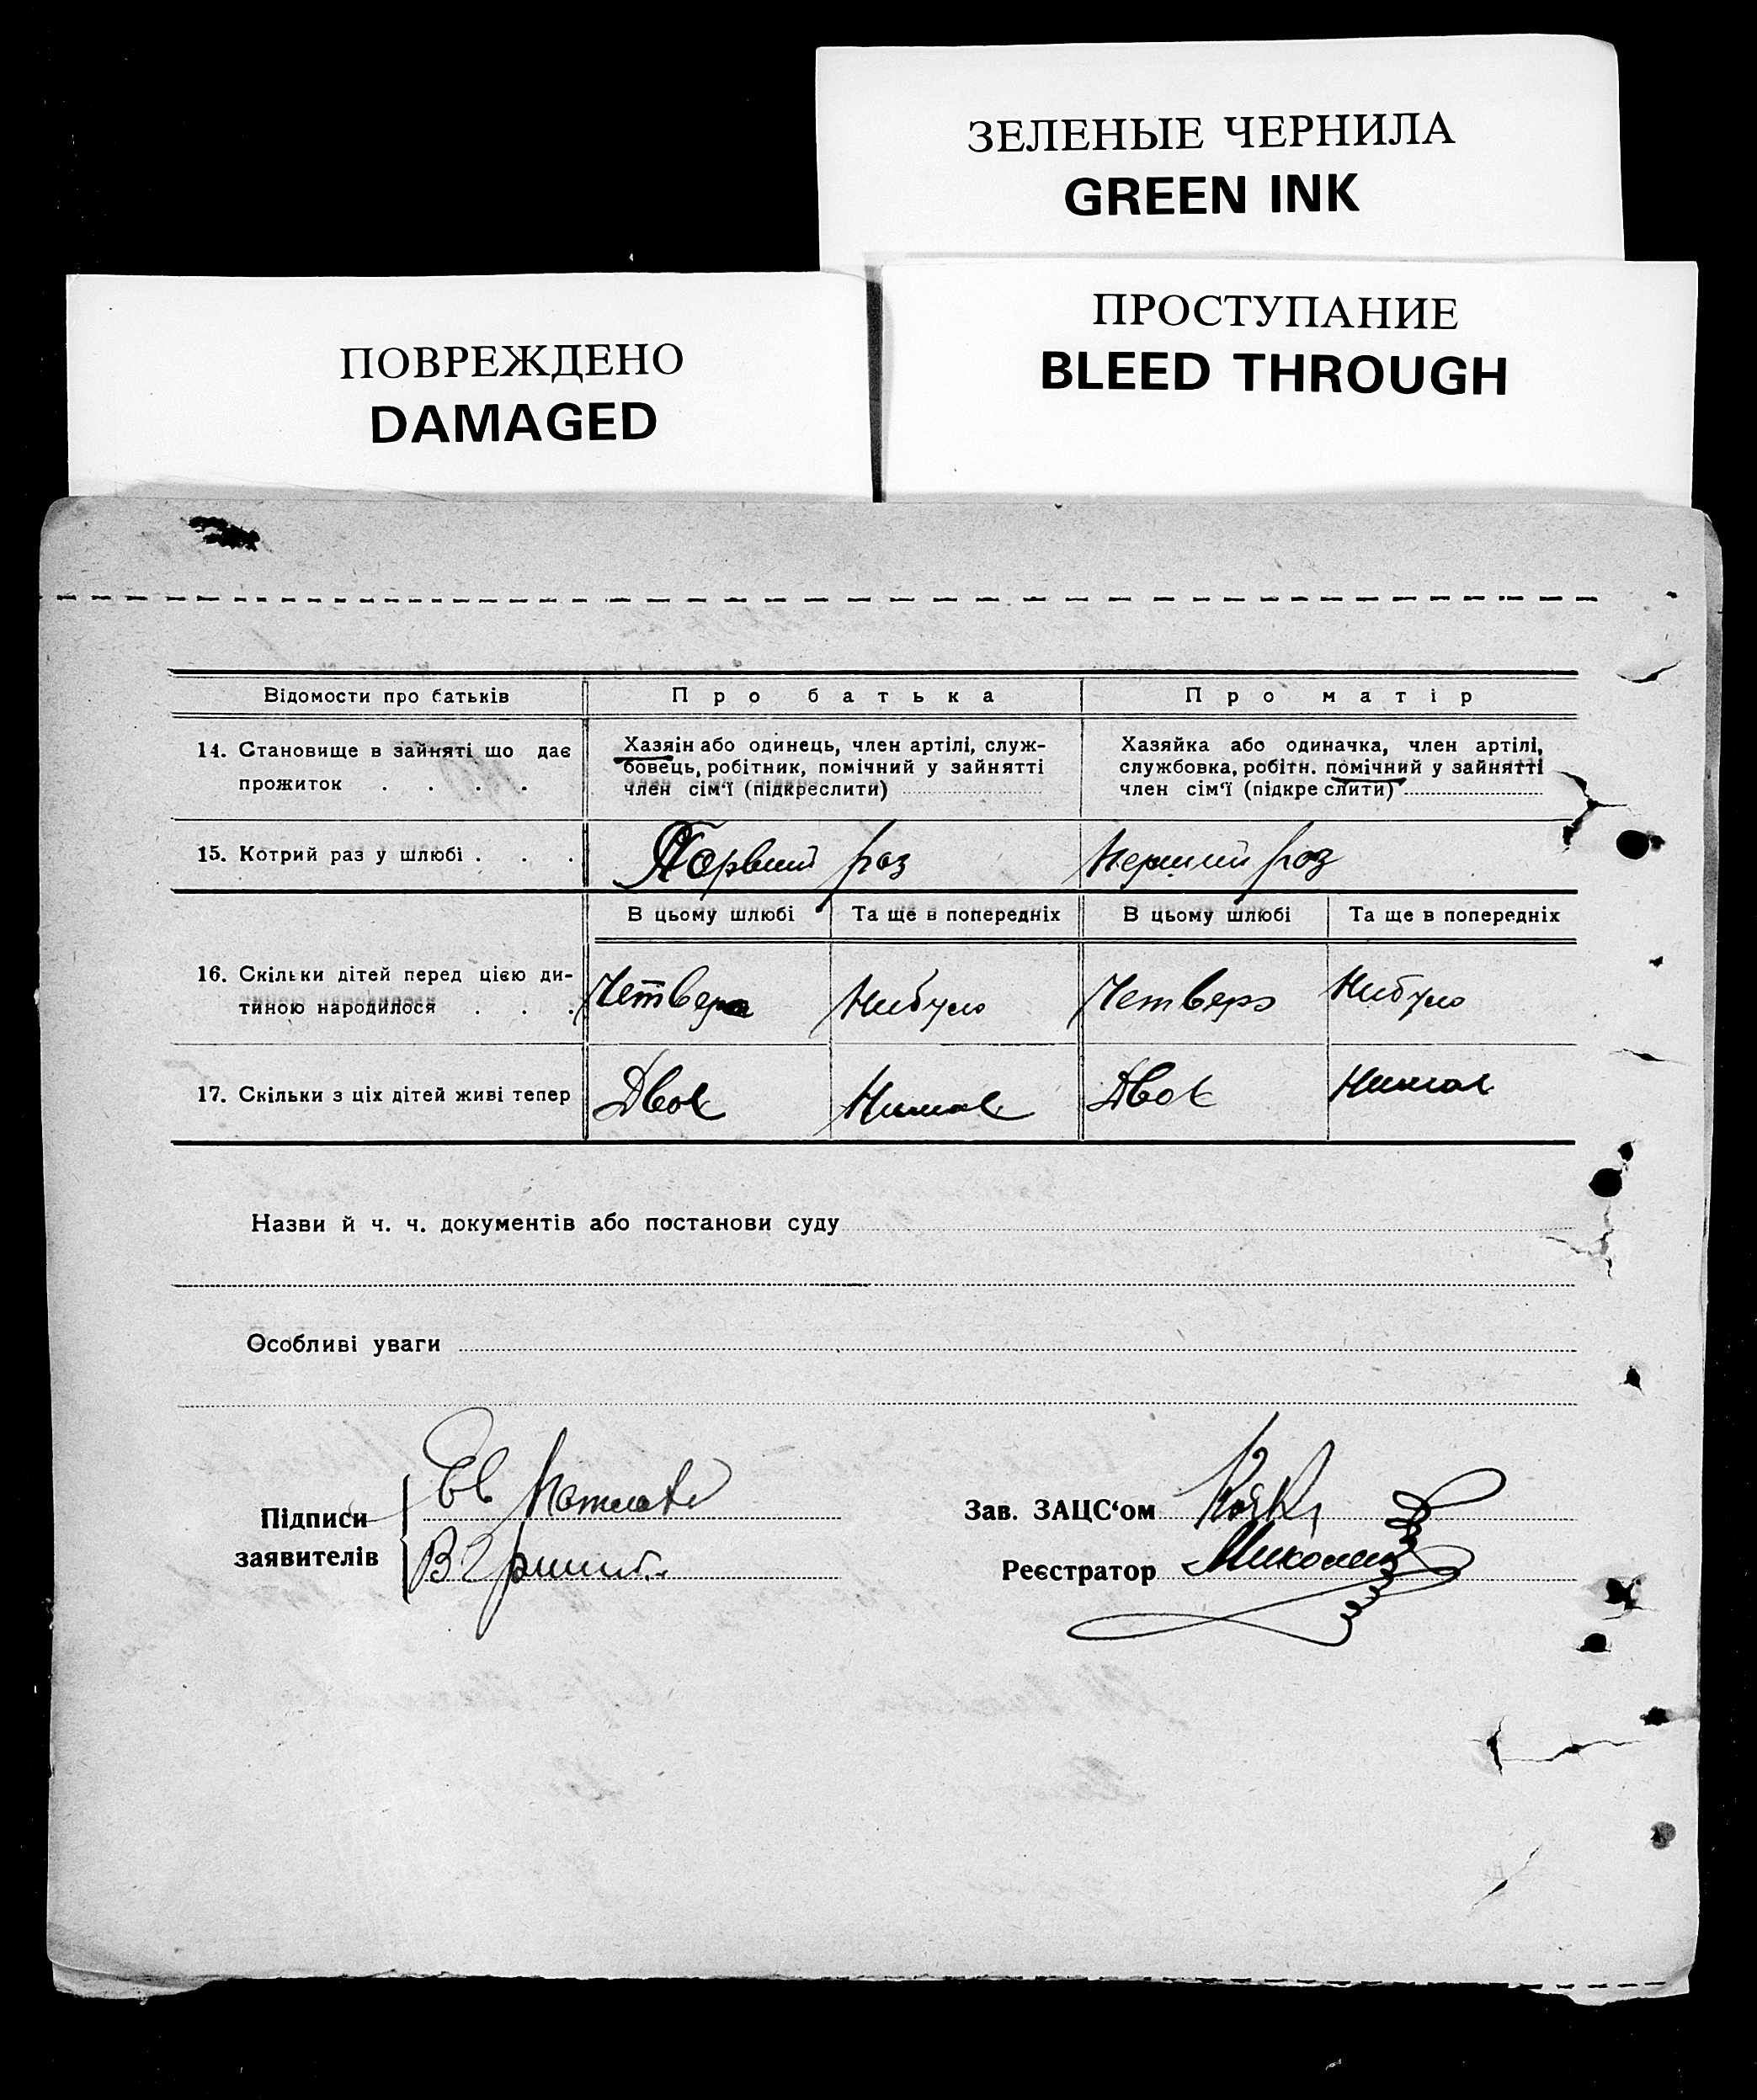 ЗЕЛЕНЫЕ ЧЕРНИЛА
GREEN INK
ПРОСТУПАНИЕ
BLEED THROUGH
ПОВРЕЖДЕНО
DAMAGED
Відомости про батьків
Про батька
Про матір
14. Становище в зайняті що дає
прожиток . . . .
Хазяін або одинець, член артілі, служ-
бовець, робітник, помічний у зайнятті
член сім'ї (підкреслити)
Хазяйка або одиначка, член артілі,
службовка, робітн. помічний у зайнятті
член сім'ї (підкреслити)
15. Котрий раз у шлюбі . . .
раз
Перший раз
В цьому шлюбі
Та ще в попередніх
В цьому шлюбі
Та ще в попередніх
16. Скільки дітей перед цією ди-
тиною народилося . . .
Четверо
Нибуло
Четверо
Нибуло
17. Скільки з ціх дітей живі тепер
Двоє
Нимає
Двоє
Нимає
Назви й ч. ч. документів або постанови суду
Особливі уваги
Підписи
заявителів
Зав. ЗАЦС'ом
Реєстратор